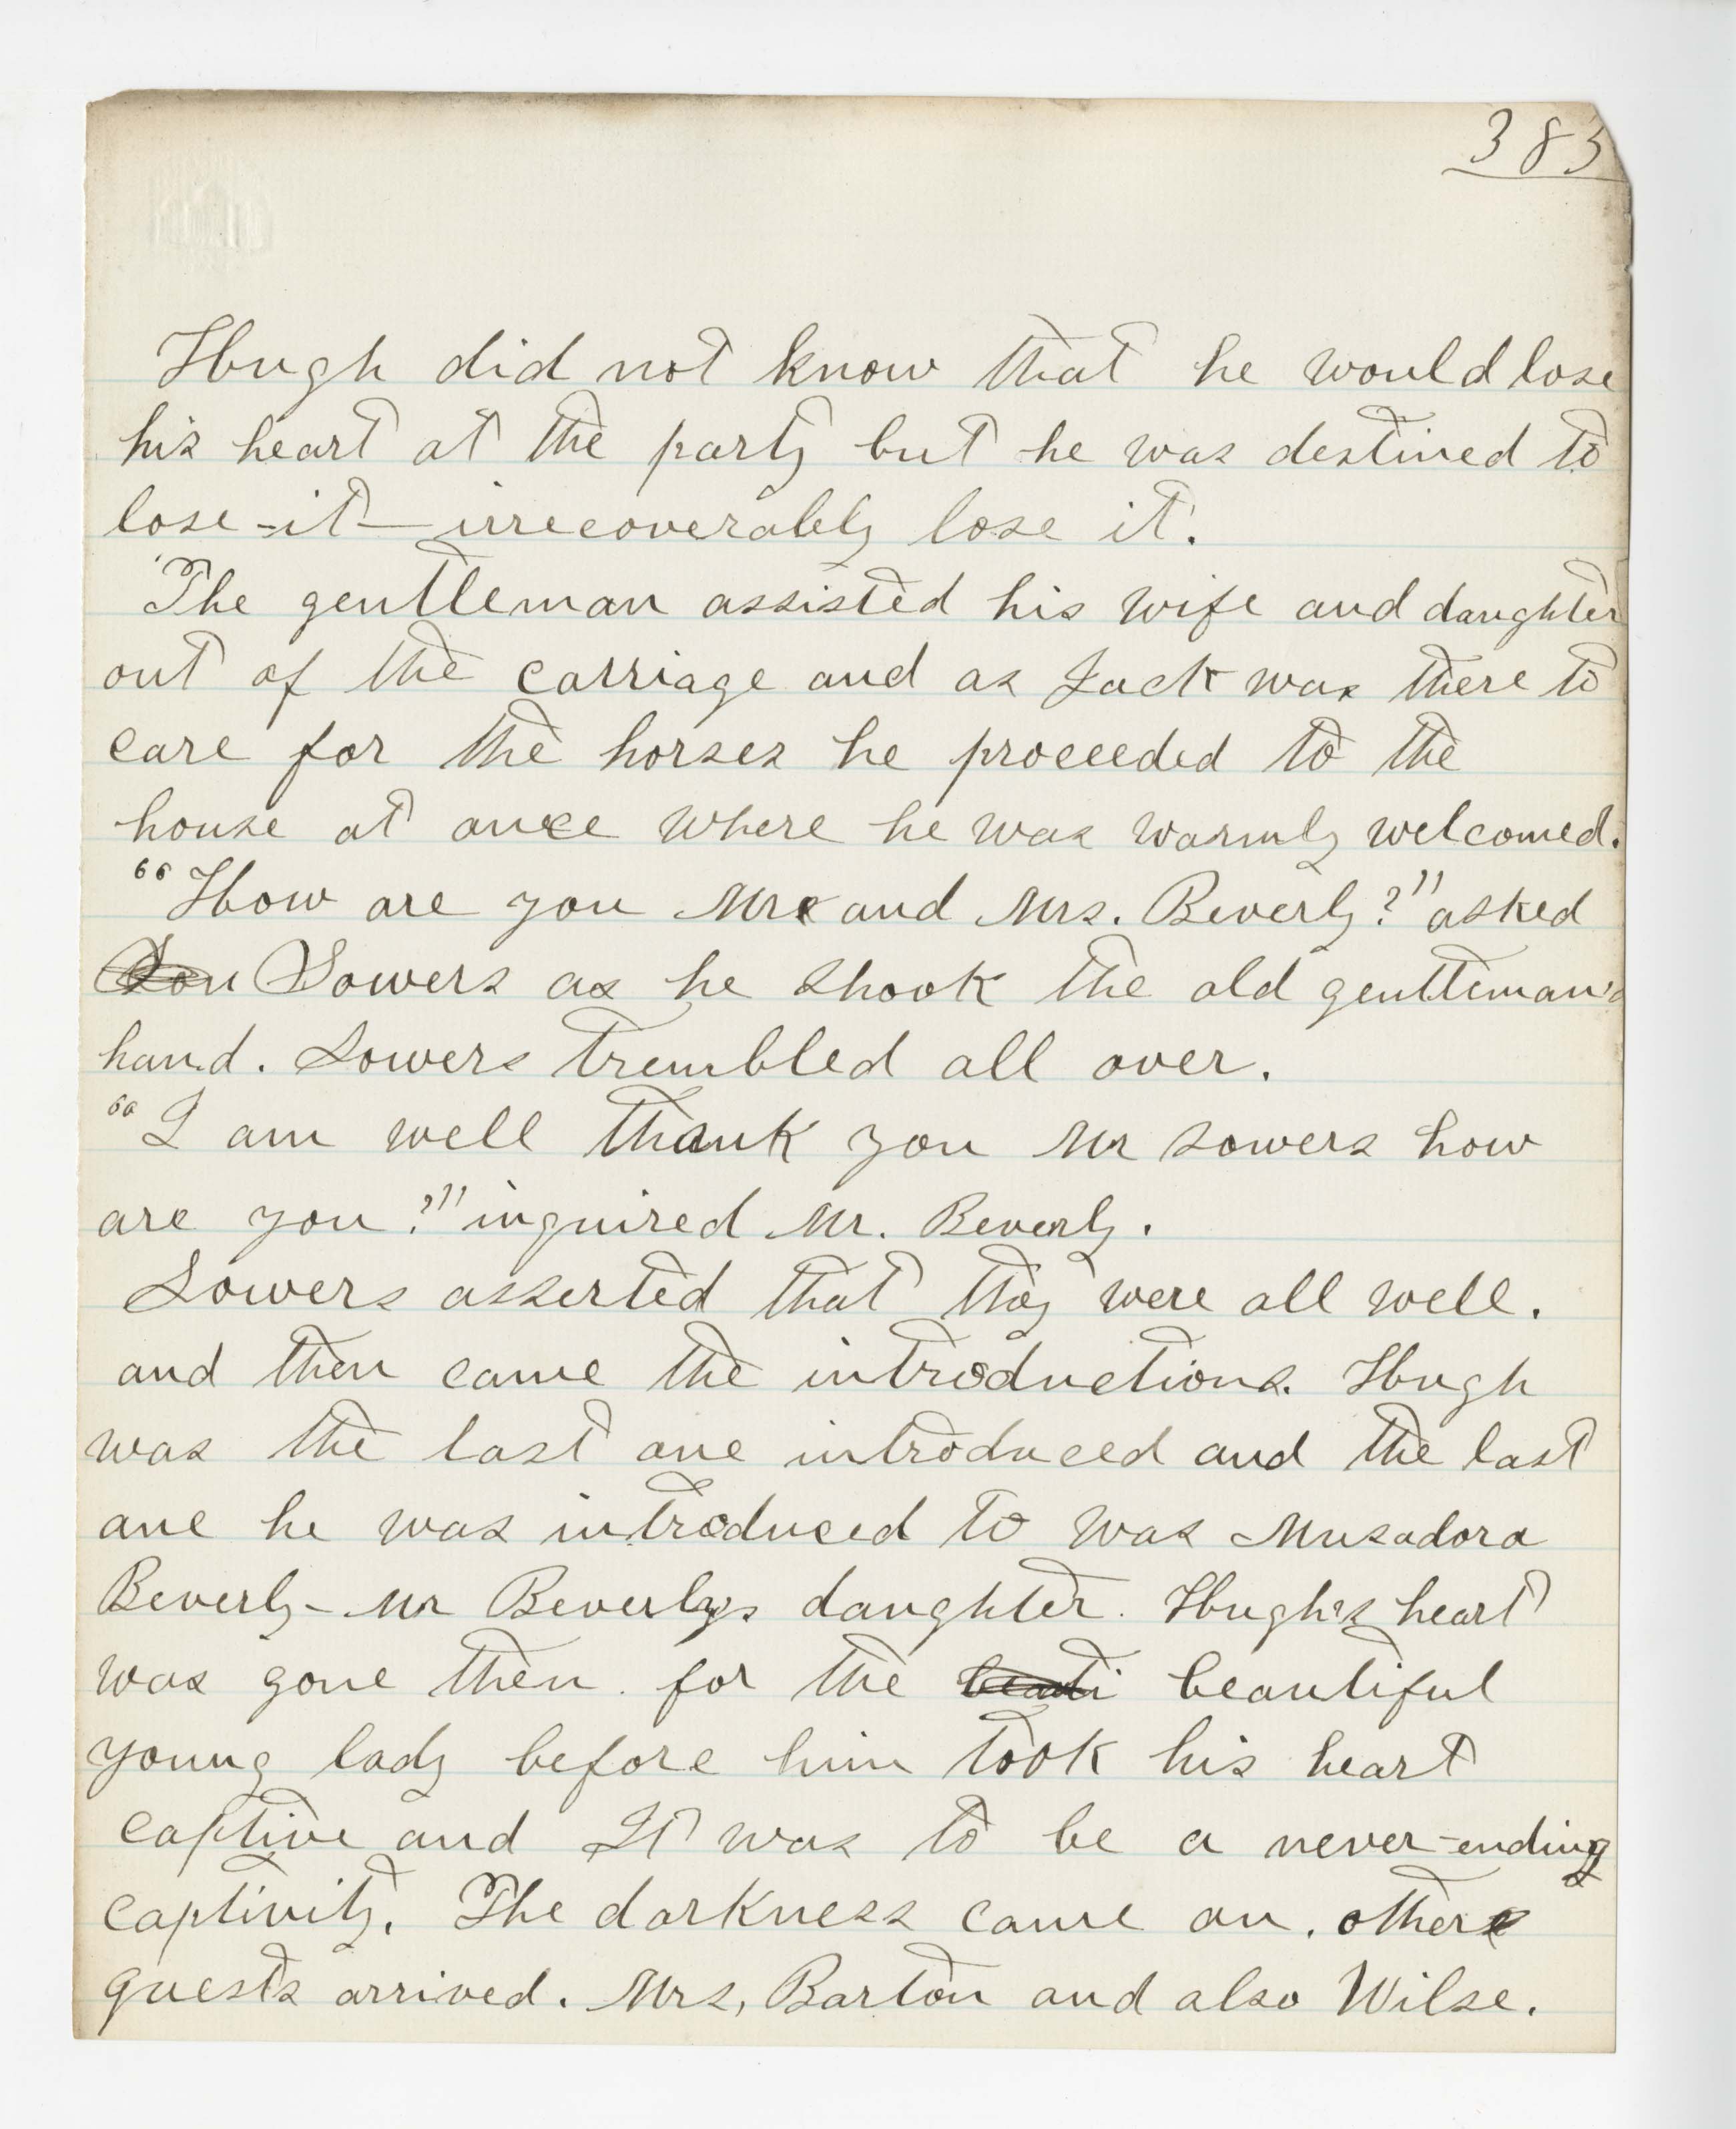 383
Hugh did not know that he would lose
his heart at the party but he was destined to
lose-it—irrecoverably lose it.
The gentleman assisted his wife and daughter
out of the carriage and as Jack was there to
care for the horses he proceeded to the
house at once where he was warmly welcomed.
"How are you Mr and Mrs. Beverly?" asked
Sowers as he shook the old gentleman's
hand. Sowers trembled all over.
"I am well thank you Mr Sowers how
are you?" inquired Mr. Beverly.
Sowers asserted that they were all well.
and then came the introductions. Hugh
was the last one introduced and the last
one he was introduced to was Musadora
Beverly- Mr Beverly's daughter. Hugh's heart
was gone then. for the beauti beautiful
young lady before him took his heart
captive and It was to be a never-ending
captivity. The darkness came on. other
guests arrived. Mrs, Barton and also Wilse.